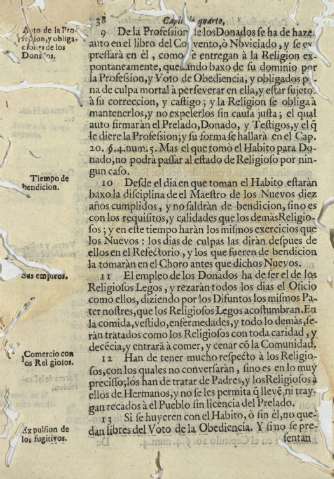 38 Capitulo quarto,
Auto de la Pro-
fession, y obliga-
ciones de los
Donados.
9 De la Profession de los Donados se ha de haze
auto en el libro del Convento, ò Noviciado, y se ex-
pressarà en èl, como se entregan à la Religion ex-
pontaneamente, quedando baxo de su dominio por
la Profession, y Voto de Obediencia, y obligados pe-
na de culpa mortal à perseverar en ella, y estàr sujetos
à su correccion, y castigo; y la Religion se obliga à
mantenerlos, y no expelerlos sin causa justa; el qual
auto firmaràn el Prelado, Donado, y Testigos, y el q̃
le diere la Profession; y su forma se hallarà en el Cap.
20. §. 4. num. 5. Mas el que tomò el Habito para Do-
nado, no podrà passar al estado de Religioso por nin-
gun caso.
Tiempo de
bendicion.
10 Desde el dia en que toman el Habito estaràn
baxo la disciplina de el Maestro de los Nuevos diez
años cumplidos, y no saldràn de bendicion, sino es
con los requisitos, y calidades que los demàs Religio-
sos; y en este tiempo haràn los mismos exercicios que
los Nuevos: los dias de culpas las diràn despues de
ellos en el Refectorio, y los que fueren de bendicion
la tomaràn en el Choro antes que dichos Nuevos.
Sus empleos.
11 El empleo de los Donados ha de ser el de los
Religiosos Legos, y rezaràn todos los dias el Oficio
como ellos, diziendo por los Difuntos los mismos Pa-
ter nostres, que los Religiosos Legos acostumbran. En
la comida, vestido, enfermedades, y todo lo demàs, se-
ràn tratados como los Religiosos con toda caridad, y
decēcia, y entrarà à comer, y cenar cō la Comunidad.
Comercio con
los Religiosos.
12 Han de tener mucho respecto à los Religio-
sos, con los quales no conversaràn, sino es en lo muy
preciso; los han de tratar de Padres, y los Religiosos à
ellos de Hermanos, y no se les permita q̃ lleve, ni tray-
gan recados à el Pueblo sin licencia del Prelado.
Expulsion de
los fugitivos.
13 Si se huyeren con el Habito, ò sin èl, no que-
dan libres del Voto de la Obediencia. Y si no se pre-
sentan